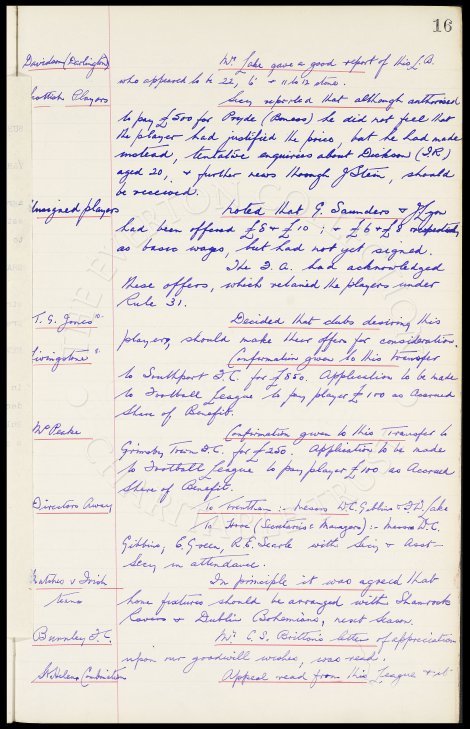 16
Davidson (Darlington) Mr. Lake gave a good report of this L.B.
who appeared to be 22, 6' & 11 to 12 stone.
Scottish Players Secy reported that although authorised
to pay £500 for Pryde (Boness) he did not feel that
the player had justified the price, but he had made
instead, tentative enquiries about Dickson (I.R.)
aged 20, & further news through J. Stein, should
be received.
Unsigned players Noted that G. Saunders &
had been offered £8 & £10 ; & £6 & £8 respectively
as basic wages, but had not yet signed.
The F.A. had acknowledged
these offers, which retained the players under
Rule 31.
T. G. Jones Decided that clubs desiring this
player, should make their offers for consideration.
Livingstone Confirmation given to this transfer
to Southport F.C. for £550. Application to be made
to Football League to pay player £100 as Accrued
Share of Benefit.
McPeake Confirmation given to this Transfer to
Grimsby Town F.C. for £250. Application to be made
to Football League to pay player £100 as Accrued
Share of Benefit.
Directors Away To Trentham :- Messrs W.C. Gibbins & F.D. Lake
To Hove (Secretaries & Managers) :- Messrs W.C.
Gibbins, C. Green, R.E. Searle with Secy & Asst-
Secy in attendance.
Matches v Irish In principle it was agreed that
teams home fixtures should be arranged with Shamrock
Rovers & Dublin Bohemians, next season.
Burnley F.C. Mr. C.S. Britton's letter of appreciation
upon our goodwill wishes, was read.
St Helens Combination Appeal read from this League & it